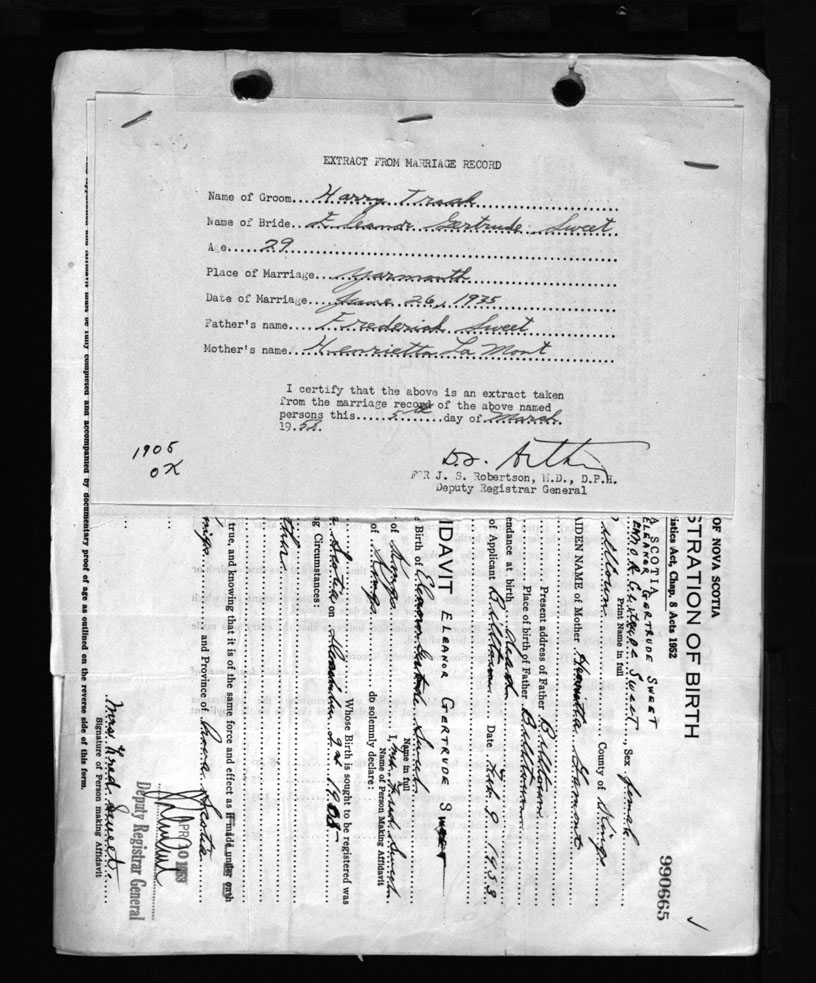 EXTRACT FROM MARRIAGE RECORD
Name of Groom....Harry Trask
Name of Bride....Eleanor Gertrude Sweet
Age.....29
Place of Marriage....Yarmouth
Date of Marriage....June 26, 1935
Father's name....Frederick Sweet
Mother's name....Henrietta La Mont
I certify that the above is an extract taken
from the marriage record of the above named
persons this.....5th.....day of March
1958.
1905
OK
FOR J. S. Robertson, M.D., D.P.H.
Deputy Registrar General
OF NOVA SCOTIA
STRATION OF BIRTH
istics Act, Chap. 8 Acts 1952
990665
A SCOTIA
ELEANOR GERTRUDE SWEET
Print Name in full
Sex female
County of Kings
AIDEN NAME of Mother Henrietta Lamont
Present address of Father Billtown
Place of birth of Father Billtown
endance at birth dead
of Applicant Billtown Date Feb. 9 1953
IDAVIT ELEANOR GERTRUDE SWEET
Birth of Eleanor Gertrude Sweet
Name in full
of Kings I, Mrs Fred Sweet
Name of Person Making Affidavit
of Kings do solemnly declare:
Whose Birth is sought to be registered was
Scotia on 2nd 1905
g Circumstances:
true, and knowing that it is of the same force and effect as if made under oath
and Province of Nova Scotia
Deputy Registrar General
Mrs Fred Sweet
Signature of Person making Affidavit
must be fully completed and accompanied by documentary proof of age as outlined on the reverse side of this form.